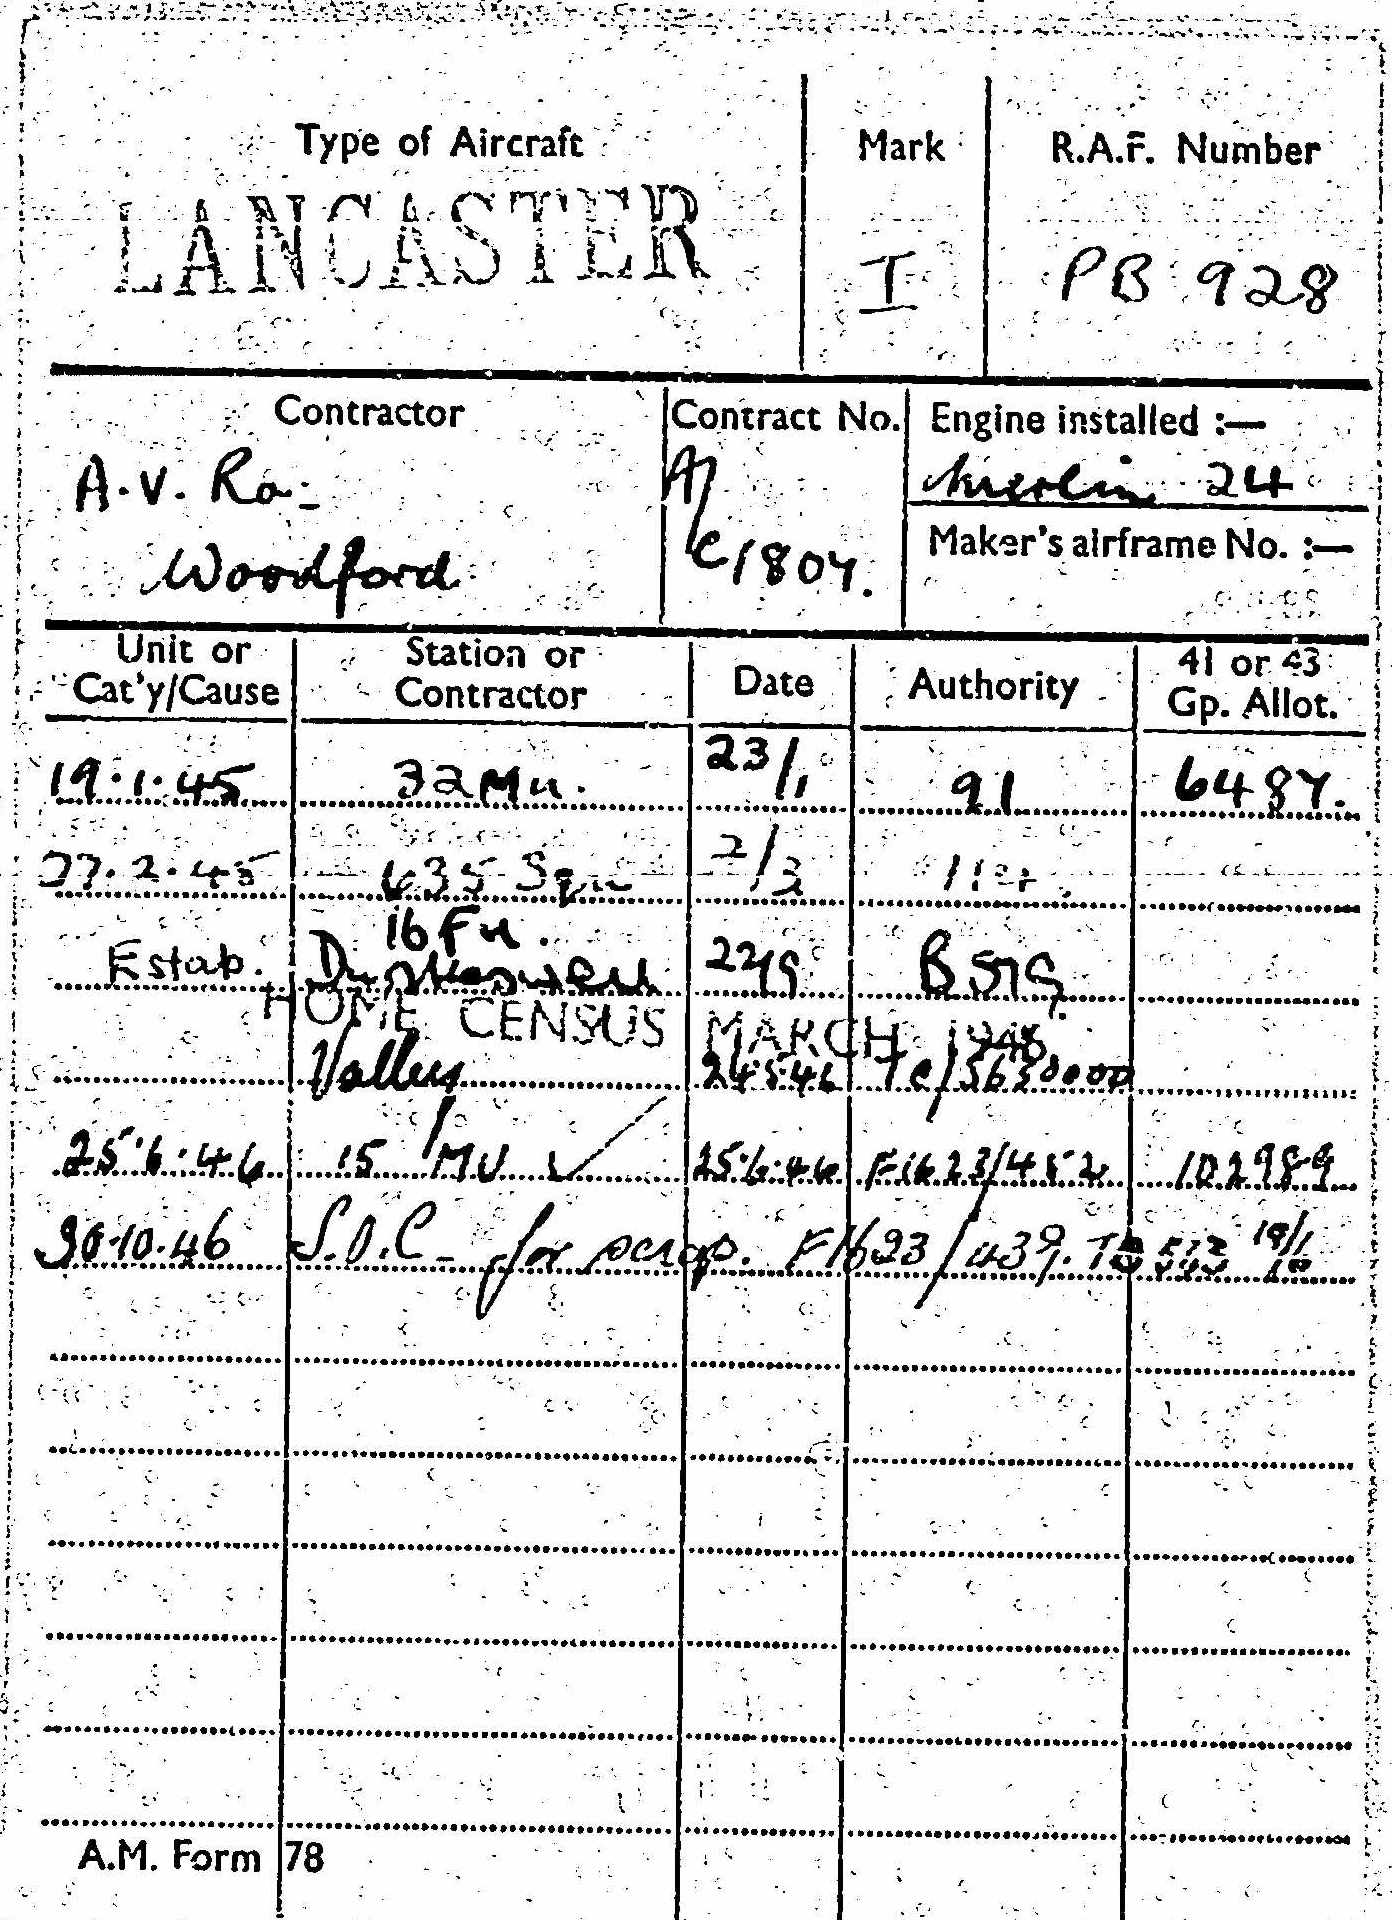 Type of Aircraft Mark R.A.F. Number
LANCASTER I PB 928
Contractor Contract No. Engine installed :—
A.V. Ro- A/ Merlin 24
Woodford C/1807. Maker's airframe No. :—
Unit or Station or Date Authority 41 or 43
Cat'y/Cause Contractor Gp. Allot.
19.1.45 32 Mu. 23/1 91 6487.
27.2.45 635 Sqn 2/3
16 Fu.
Estab. 22/9
HOME CENSUS MARCH 1946
24.5.46
25.6.46 15 MU 25.6.46 F1623/452 102989
30.10.46 S.O.C- for scrap. F1623/439.
A.M. Form 78